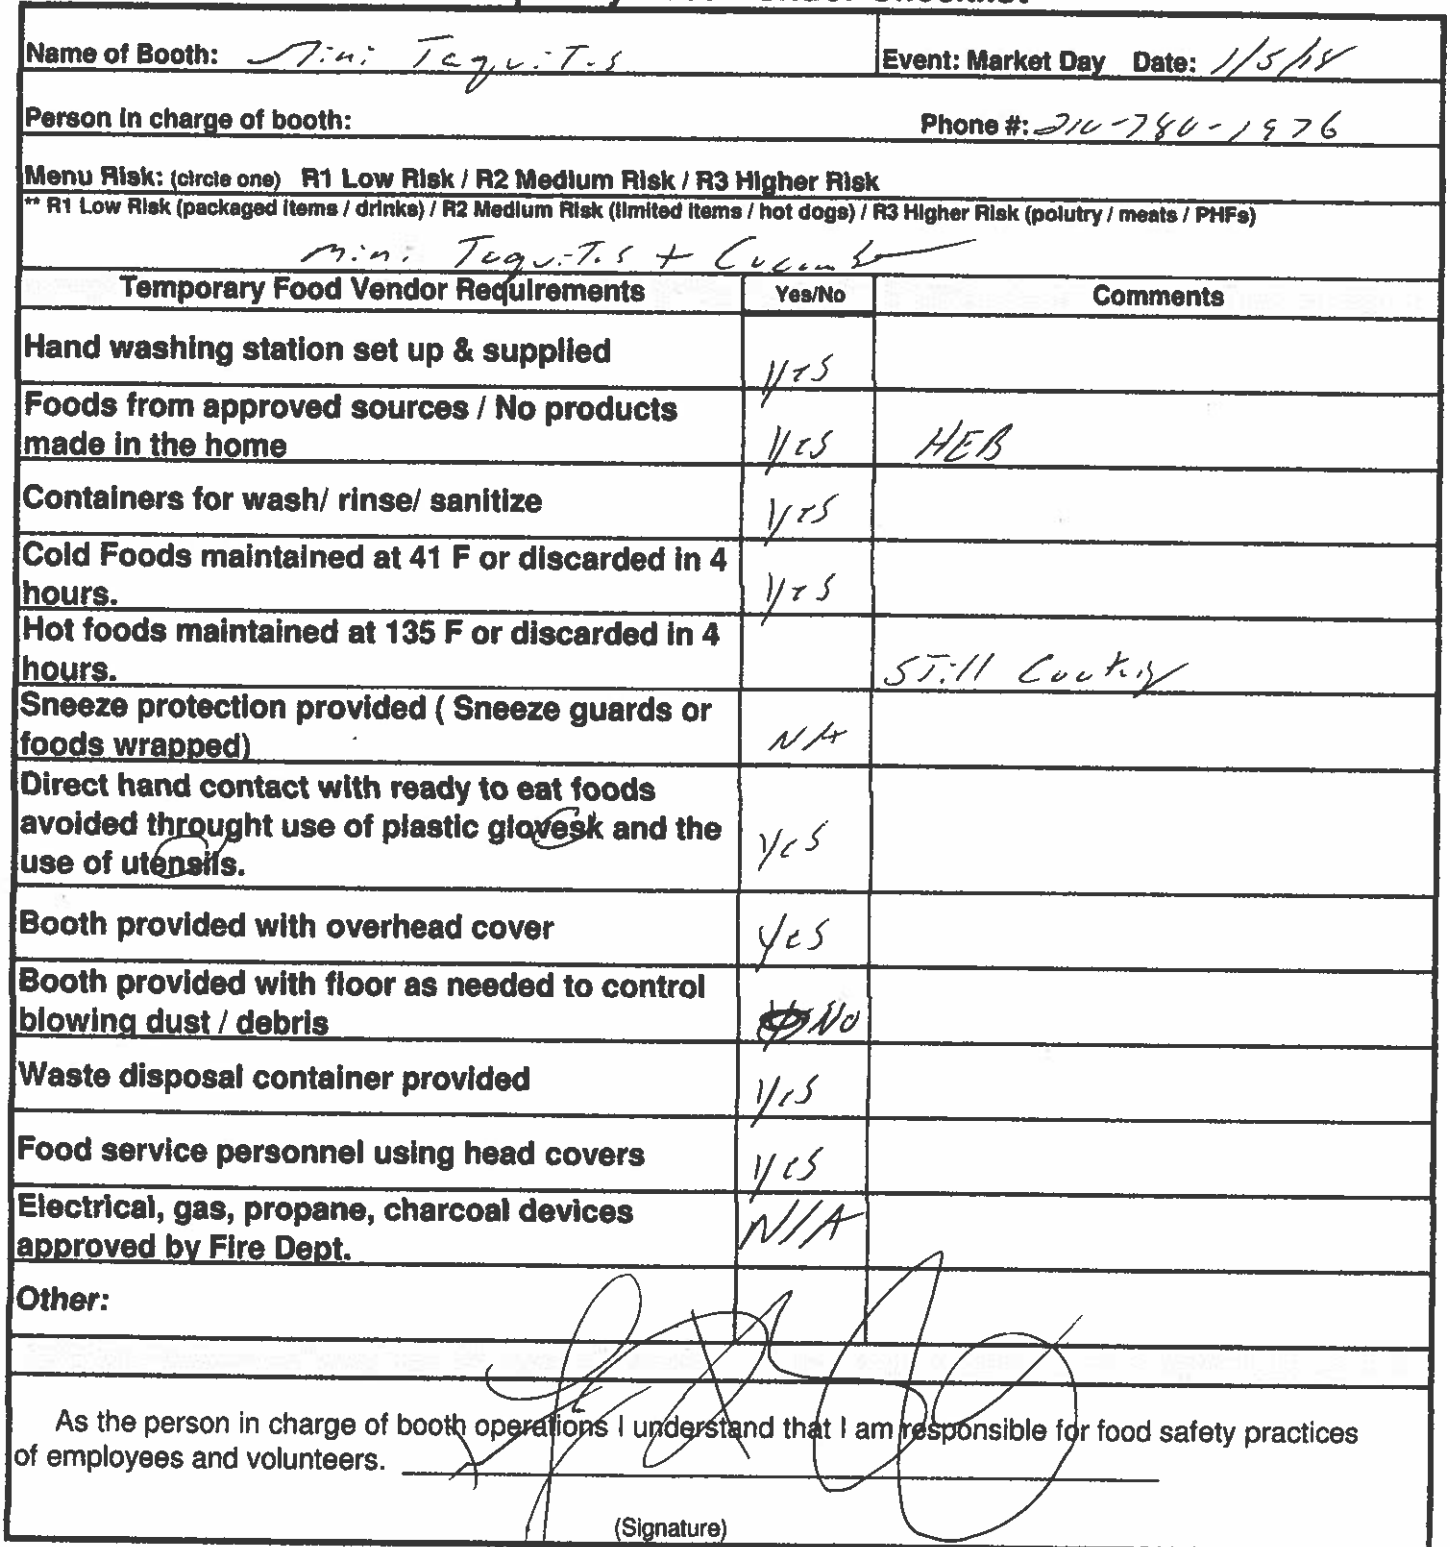 Checklist
Name of Booth: Mini Taquitos Event: Market Day Date: 1/5/18
Person in charge of booth: Phone #: 210-780-1976
Menu Risk: (circle one) R1 Low Risk / R2 Medium Risk / R3 Higher Risk
** R1 Low Risk (packaged items / drinks) / R2 Medium Risk (limited items / hot dogs) / R3 Higher Risk (polutry / meats / PHFs)
Mini Taquitos + Cucumber
Temporary Food Vendor Requirements Yes/No Comments
Hand washing station set up & supplied Yes
Foods from approved sources / No products
made in the home Yes HEB
Containers for wash/ rinse/ sanitize Yes
Cold Foods maintained at 41 F or discarded in 4
hours. Yes
Hot foods maintained at 135 F or discarded in 4
hours. Still Cooking
Sneeze protection provided ( Sneeze guards or
foods wrapped) N/A
Direct hand contact with ready to eat foods
avoided throught use of plastic glovesk and the
use of utensils. Yes
Booth provided with overhead cover Yes
Booth provided with floor as needed to control
blowing dust / debris No
Waste disposal container provided Yes
Food service personnel using head covers Yes
Electrical, gas, propane, charcoal devices
approved by Fire Dept. N/A
Other:
As the person in charge of booth operations I understand that I am responsible for food safety practices
of employees and volunteers.
(Signature)